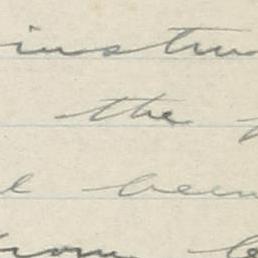 instru
the
been
from